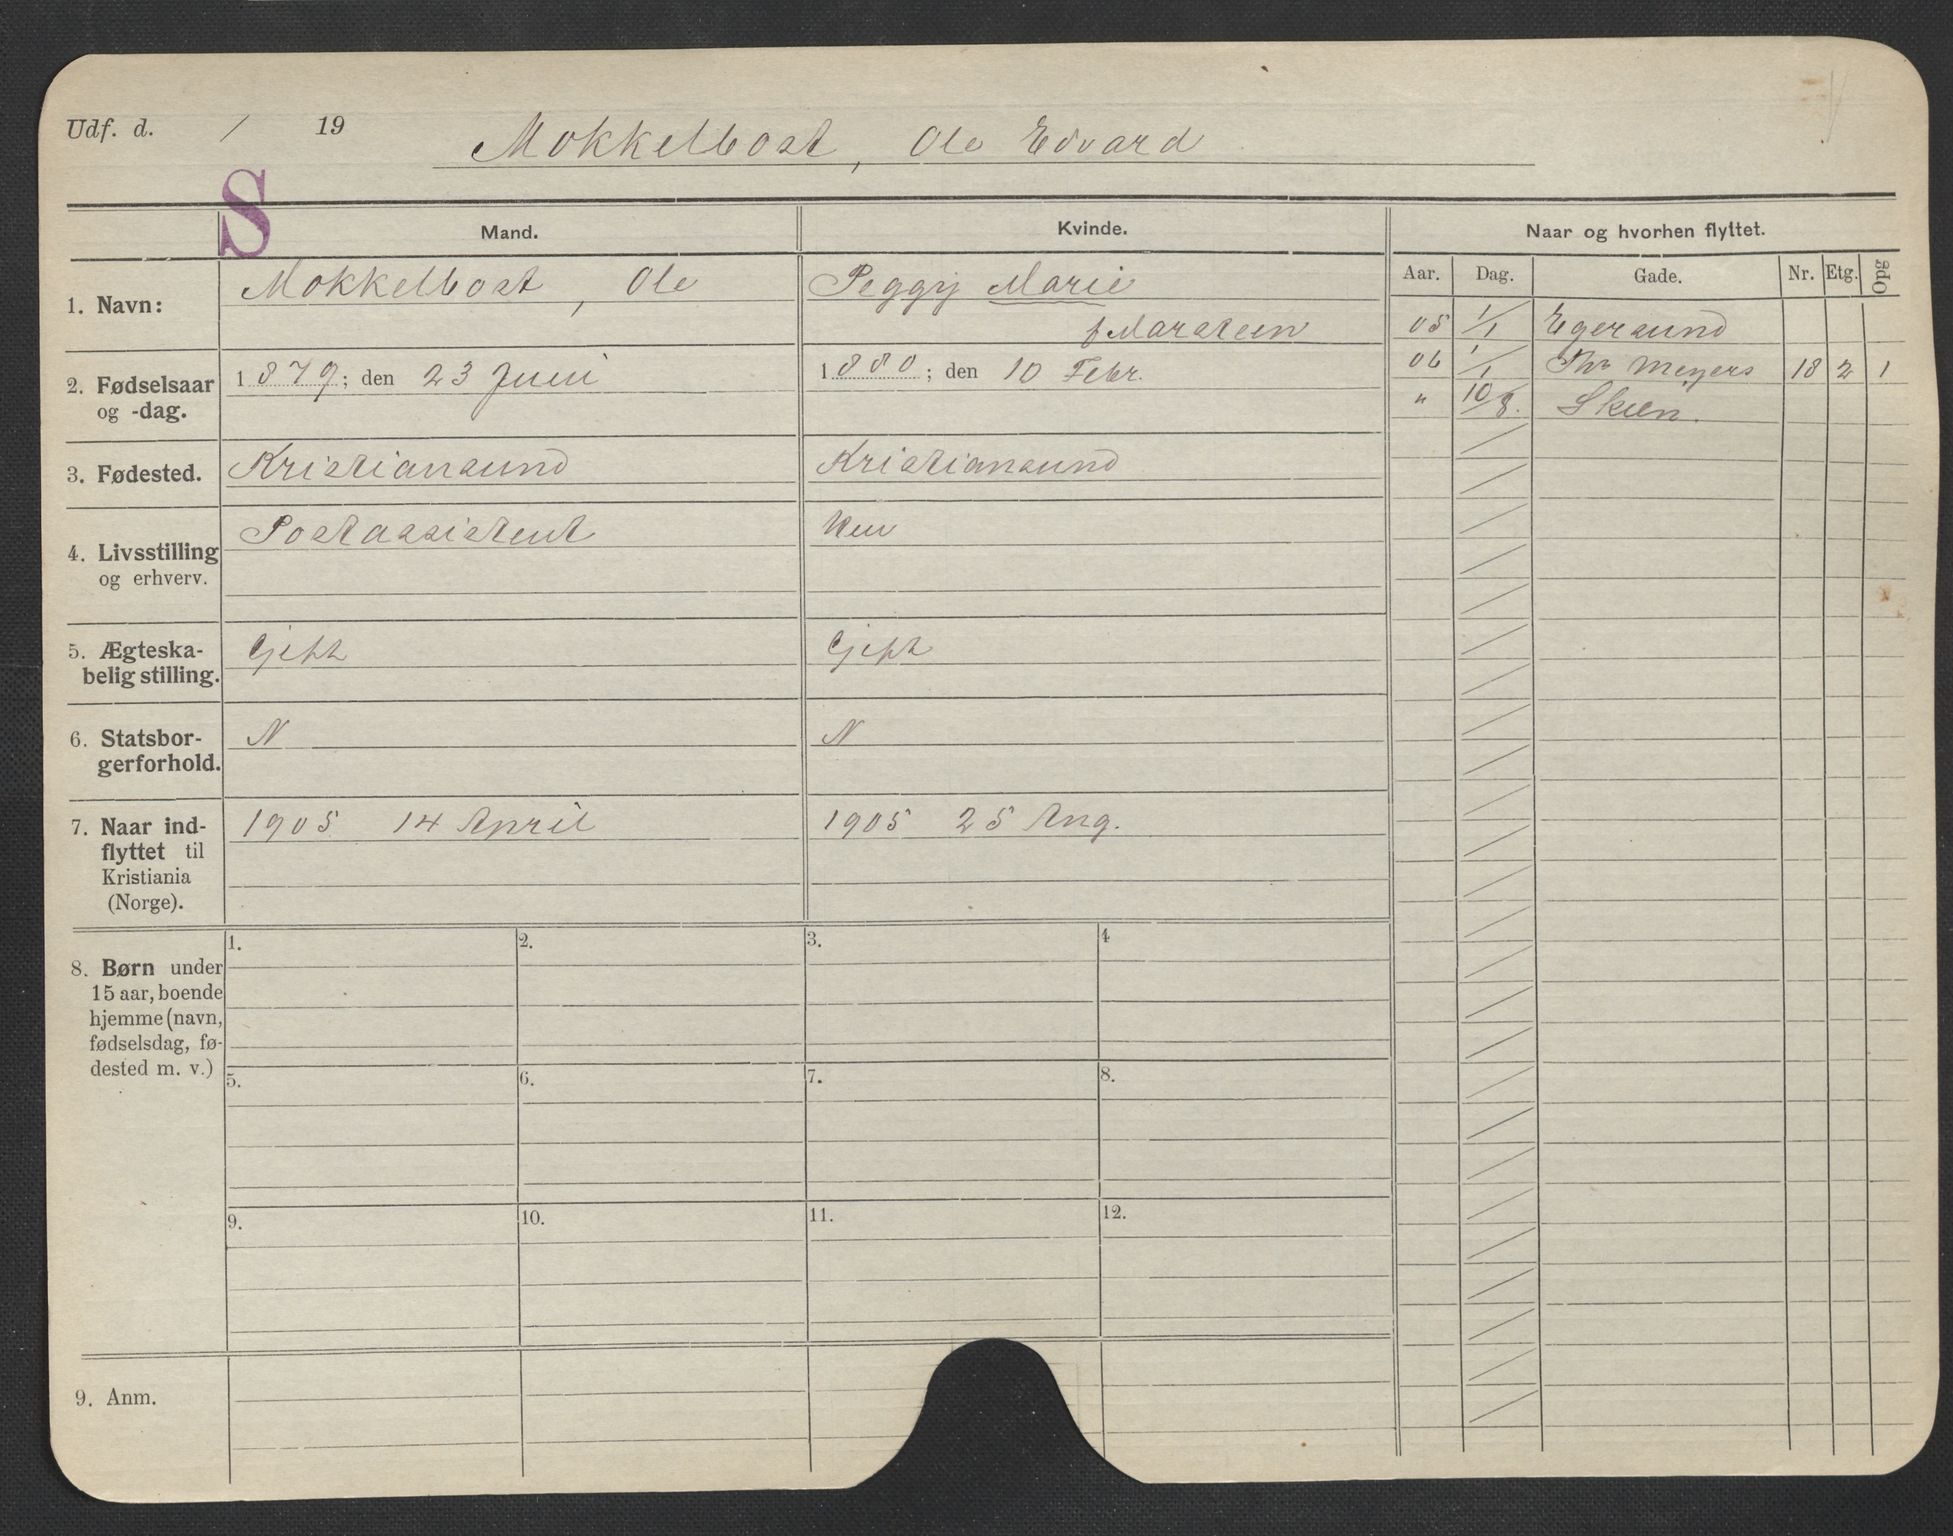 Udf. d. / 19
Mokkelbost, Ole Edvard
S
Mand.
Kvinde.
Naar og hvorhen flyttet.
Aar. Dag. Gade. Nr. Etg. Opg
1. Navn:
Mokkelbost, Ole
Peggy Marie
f Marstein
05 1/1 Egersund
06 1/1 Thv Meyers 18 2 1
" 10/8. Skien.
2. Fødselsaar
og -dag.
1879; den 23 Juni
1880; den 10 Febr.
3. Fødested.
Kristiansund
Kristiansund
4. Livsstilling
og erhverv.
Postassistent
5. Ægteska-
belig stilling.
Gift
Gift
6. Statsbor-
gerforhold.
N
N
7. Naar ind-
flyttet til
Kristiania
(Norge).
1905 14 April
1905 25 Aug.
8. Børn under
15 aar, boende
hjemme (navn,
fødselsdag, fø-
dested m. v.)
1. 2. 3. 4
5. 6. 7. 8.
9. 10. 11. 12.
9. Anm.